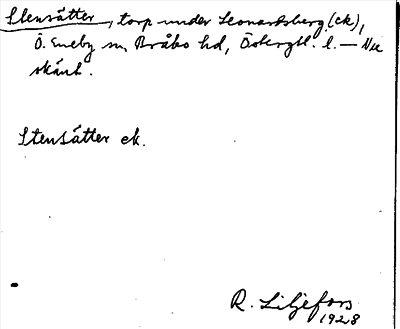 Stensätter, torp under Leonardsberg (ek),
Ö. Eneby sn, Bråbo hd, Östergtl. l. — Nu
okänt.
Stensätter ek.
R. Liljefors
1928